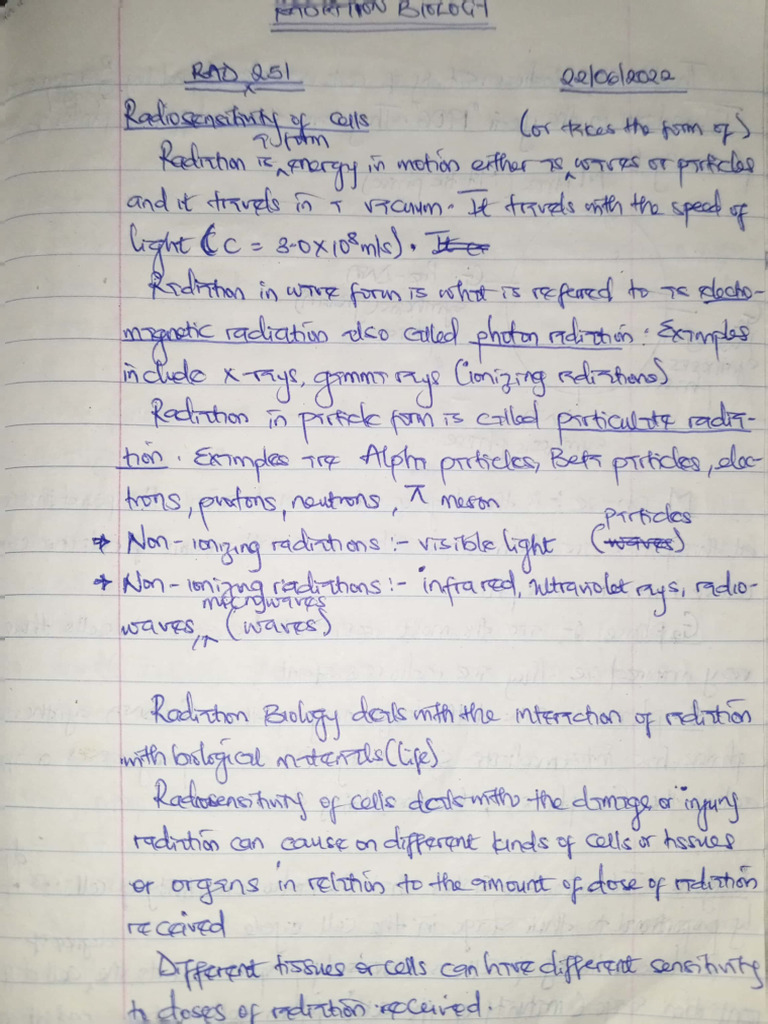 RADIATION BIOLOGY
RAD 251 22/06/2022
Radiosensitivity of cells (or takes the form of)
a form
Radiation is energy in motion either as waves or particles
and it travels in a vacuum. It travels with the speed of
light (C = 3.0 x 10⁸ m/s). It
Radiation in wave form is what is refered to as electro-
magnetic radiation also called photon radiation. Examples
include x-rays, gamma rays (ionizing radiations)
Radiation in particle form is called particulate radia-
tion. Examples are Alpha particles, Beta particles, elec-
trons, protons, neutrons, π meson
particles
→ Non-ionizing radiations :- visible light (waves)
→ Non-ionizing radiations :- infrared, ultraviolet rays, radio-
microwaves
waves, (waves)
Radiation Biology deals with the interaction of radiation
with biological materials (life)
Radiosensitivity of cells deals with the damage or injury
radiation can cause on different kinds of cells or tissues
or organs in relation to the amount of dose of radiation
received
Different tissues or cells can have different sensitivity
to doses of radiation received.